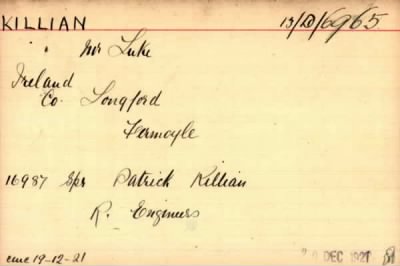 KILLIAN 13/D/6965
" Mr Luke
Ireland
Co. Longford
Fermoyle
16987 Spr Patrick Killian
R. Engineers
19-12-21 DEC 1921